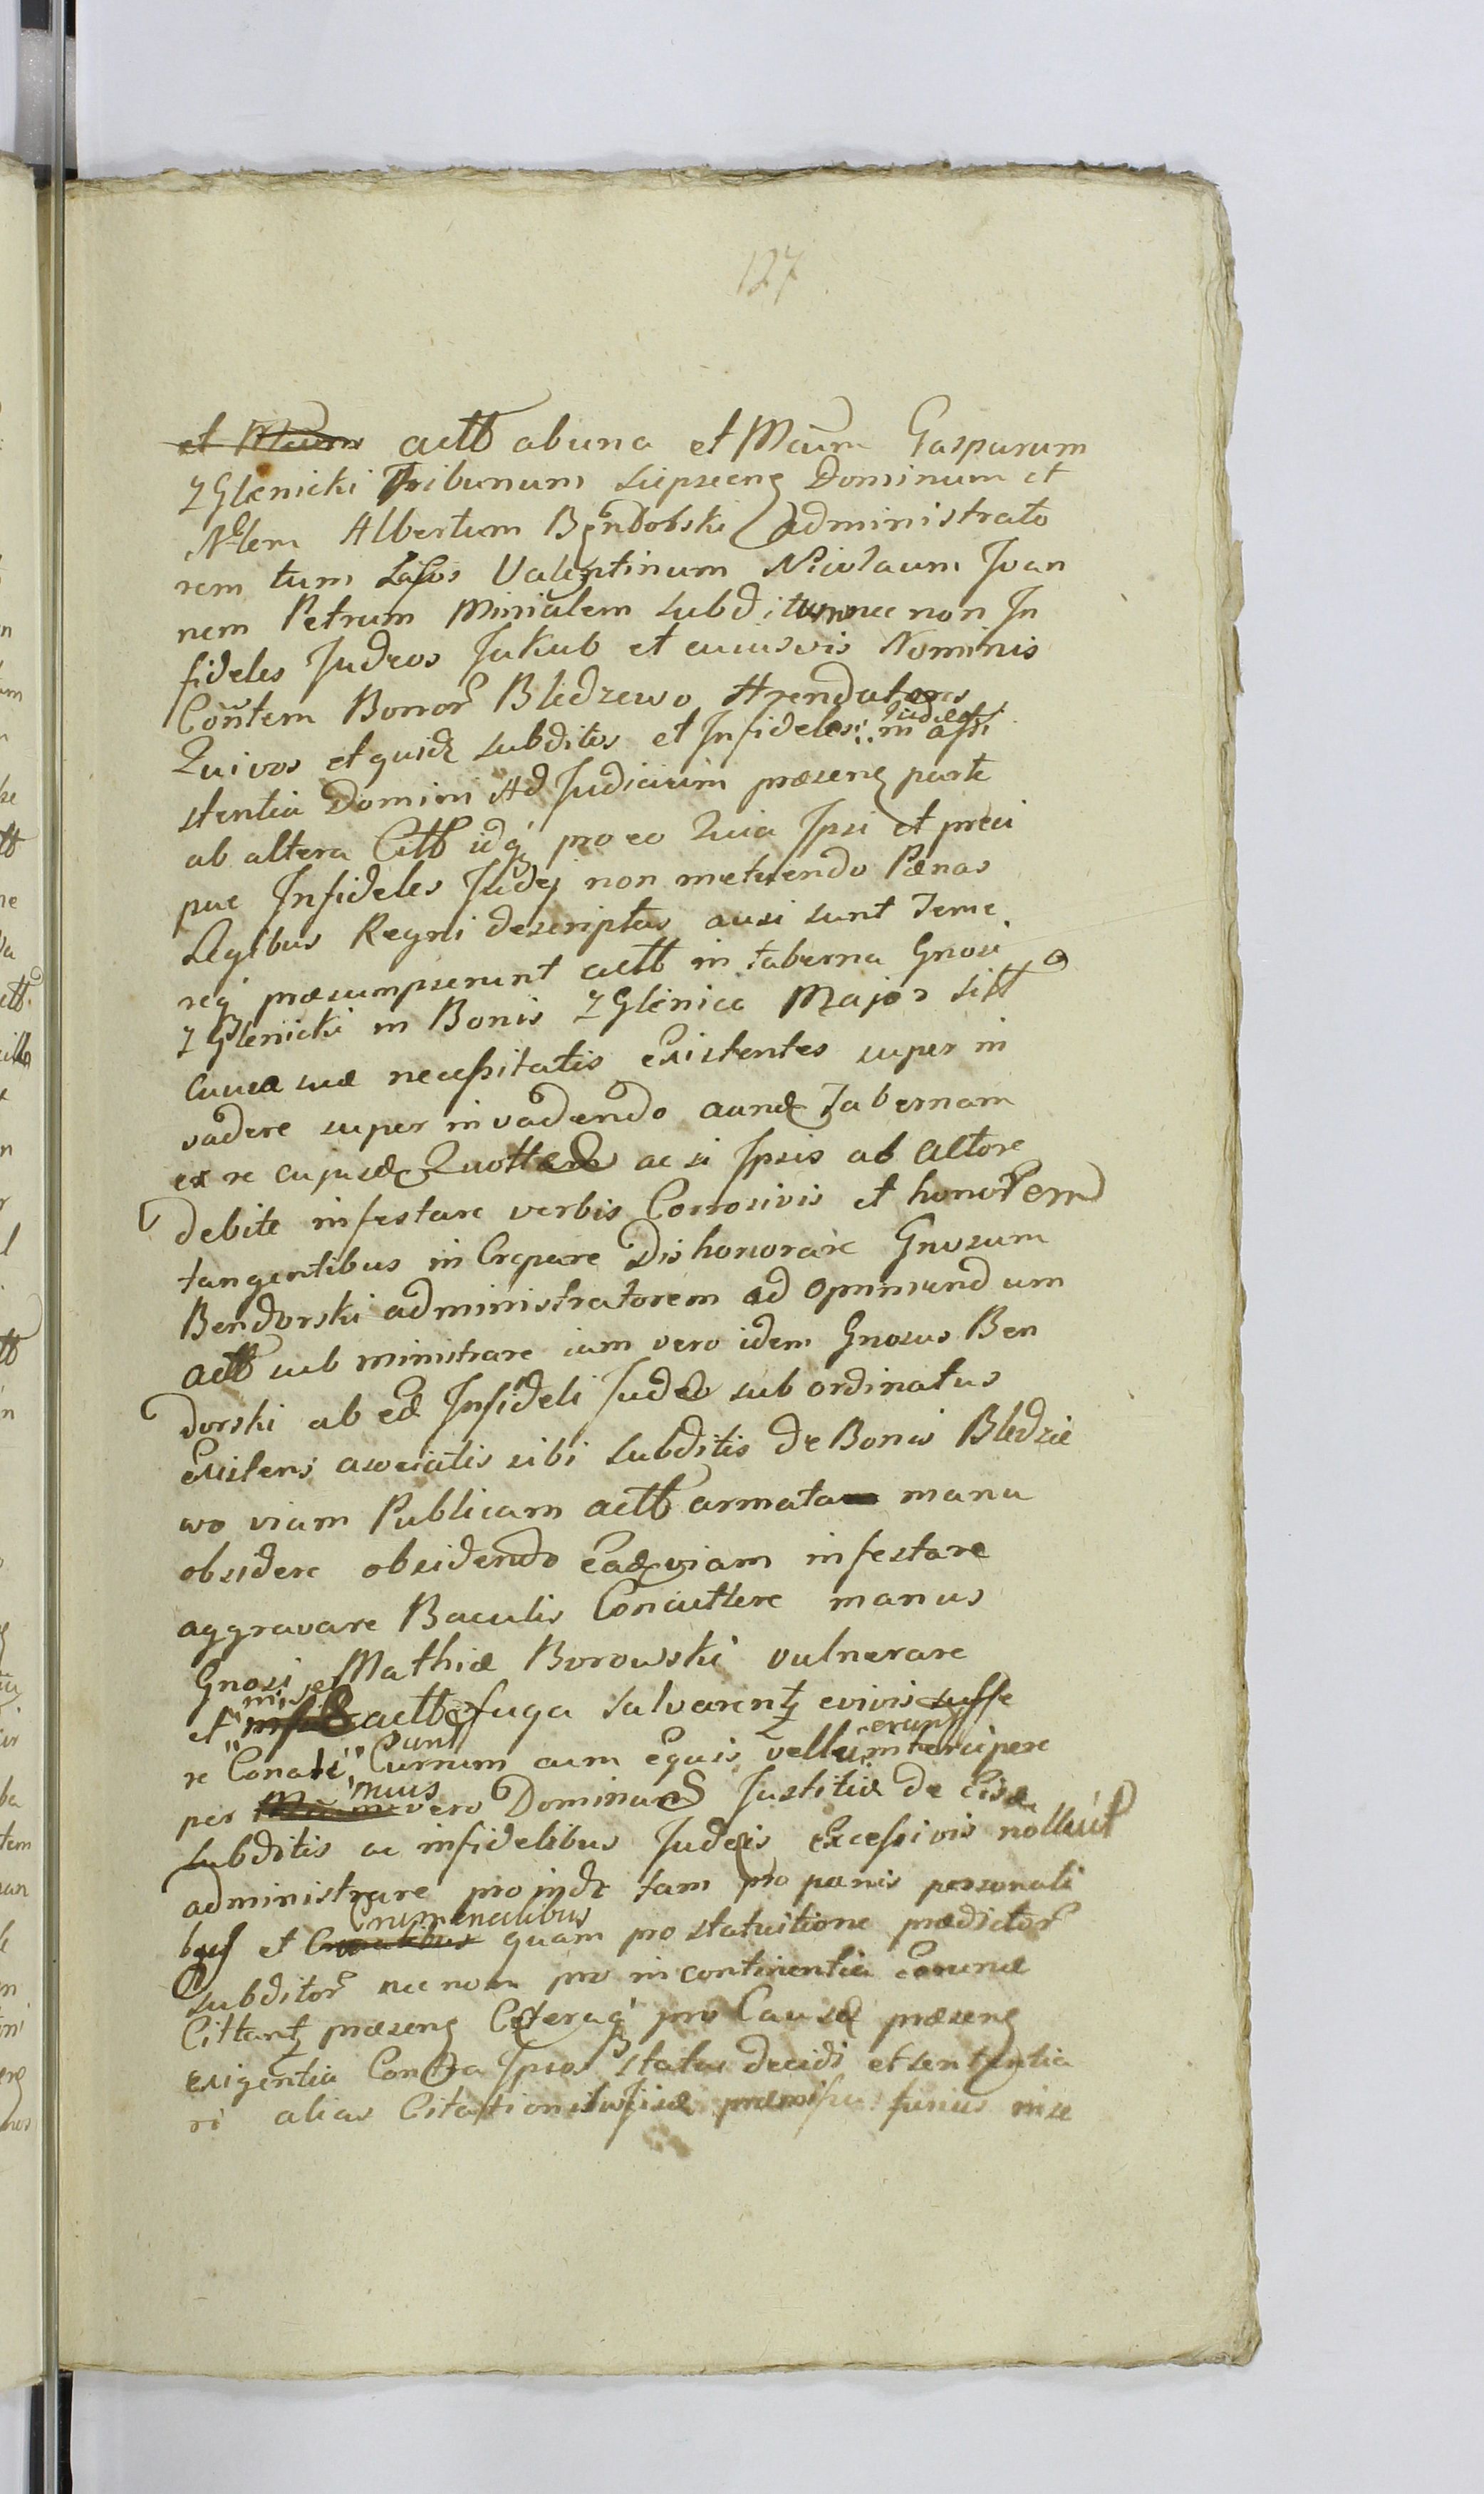 127
et Mcum actt ab una et Mcum Gasparum
Zglenicki Tribunum Liepseens Dominum et
Nolem Albertum Bendorski administrato
rem tum Labos Valentinum Nicolaum Joan
nem Petrum Minialem subditum nec non In
fideles Judeos Jakub et cuiusvis Nominis
Contem Bonor Bledzewo Arendatores
Quivos et quid subditos et Infideles in assi
Judeos
stentia Domini Ad Judicium præsens parte
ab altera Citt idq pro eo Quia Ipsi et præci
pue Infideles Judej non metuendo Pænas
Legibus Regni descriptas ausi sunt Teme
req præsumpserunt actt in taberna Gnosi
Zglenicki in Bonis Zglinice Major sitt
causa suæ necessitatis Existentes super in
vadere super invadendo eand Tabernam
ex re cujusd ac si Ipsis ab actore
debite infestare verbis Corrosivis et honorem
tangentibus in Crepare Dishonorare Gnosum
Bendorski administratorem ad opprimendum
actt sub ministrare iam vero idem Gnosus Ben
dorski ab eod Infideli Judeo sub ordinatus
Existens asociatis sibi subditis de Bonis Bledze
wo viam Publicam actt armata manu
obsidere obsidendo Eand viam infestare
aggravare Baculis Concuttere manus
Gnosi Mathiæ Borowski vulnerare
et actt fuga salvarent evivis suffe
re Conati sunt Currum cum Equis intercipere
per vero Dominus Justitiæ de Eisd
subditis ac infidelibus Judeis Excessivis nolluit
administrare proinde tam pro pænis personali
bus et quam pro statuitione prædictor
Criminalibus
subditor nec non pro incontinentia
Cittant præsens Ceteraq pro Causæ præsens
exigentia Contra Ipsos statui decidi et sententia
ri alias Citationis præmissa